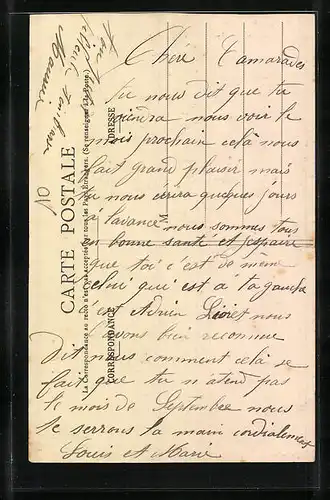 Chére Camarades
tu nous dit que tu
viendra nous voir le
mois prochain celà nous
fait grand plaisir mais
tu nous ecrira quelques jours
à lavance nous sommes tous
en bonne santé et j'espaire
que toi c'est de même
celui qui est à ta gauche
c'est Adrien Lioret nous
avons bien reconnue
Dit nous comment celà se
fait que tu n'atend pas
le mois de Septembre nous
te serrons la main cordialement
Louis et Marie
CARTE POSTALE
La Correspondance au recto n'est pas acceptée par tous les pays étrangers. (Se renseigner à la Poste).
CORRESPONDANCE
ADRESSE
M